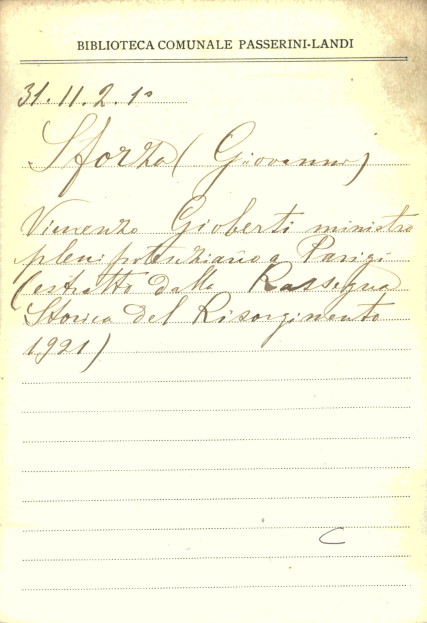 BIBLIOTECA COMUNALE PASSERINI-LANDI
31.11.2.1º
Sforza (Giovanni)
Vincenzo Gioberti ministro
plenipotenziario a Parigi
(estratto dalla Rassegna
Storica del Risorgimento
1921)
C